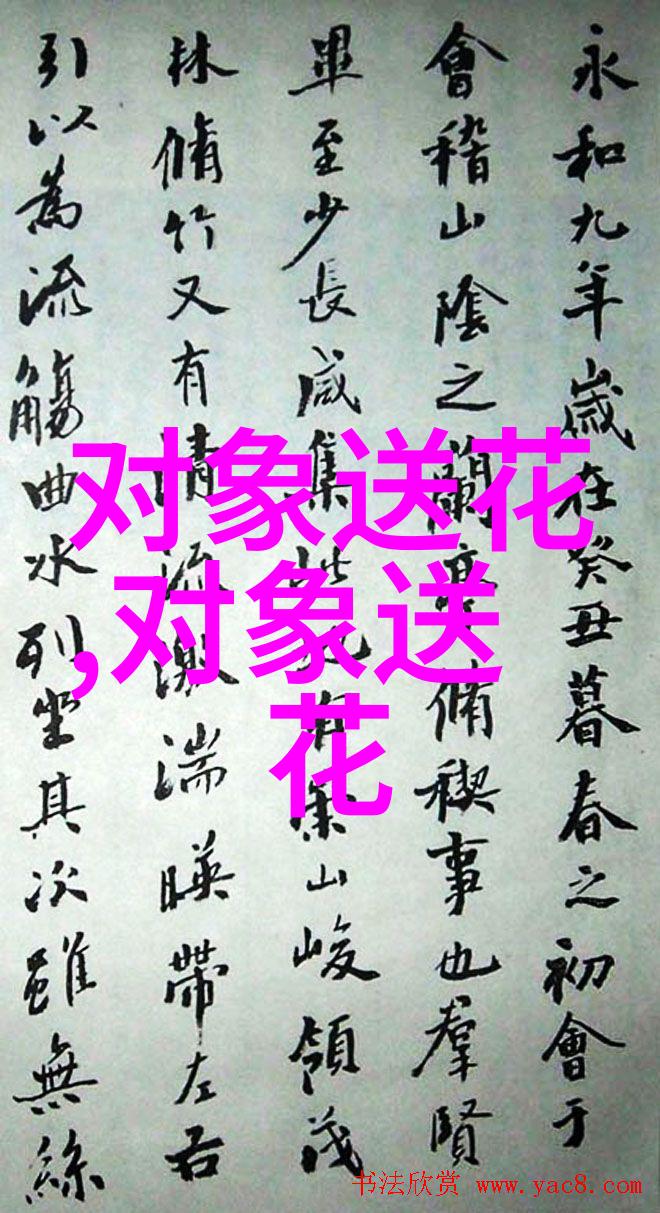 永和九年歲在癸丑暮春之初會于
會稽山陰之蘭亭脩稧事也羣賢
畢至少長咸集此地有崇山峻領茂
林脩竹又有清流激湍暎帶左右
引以為流觴曲水列坐其次雖無絲
对象送花
,对象送
花
书法欣赏 www.yac8.com